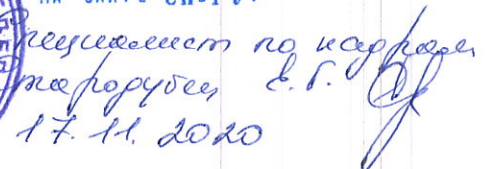 Специалист по кадрам
Стародубец Е. Г.
17.11.2020